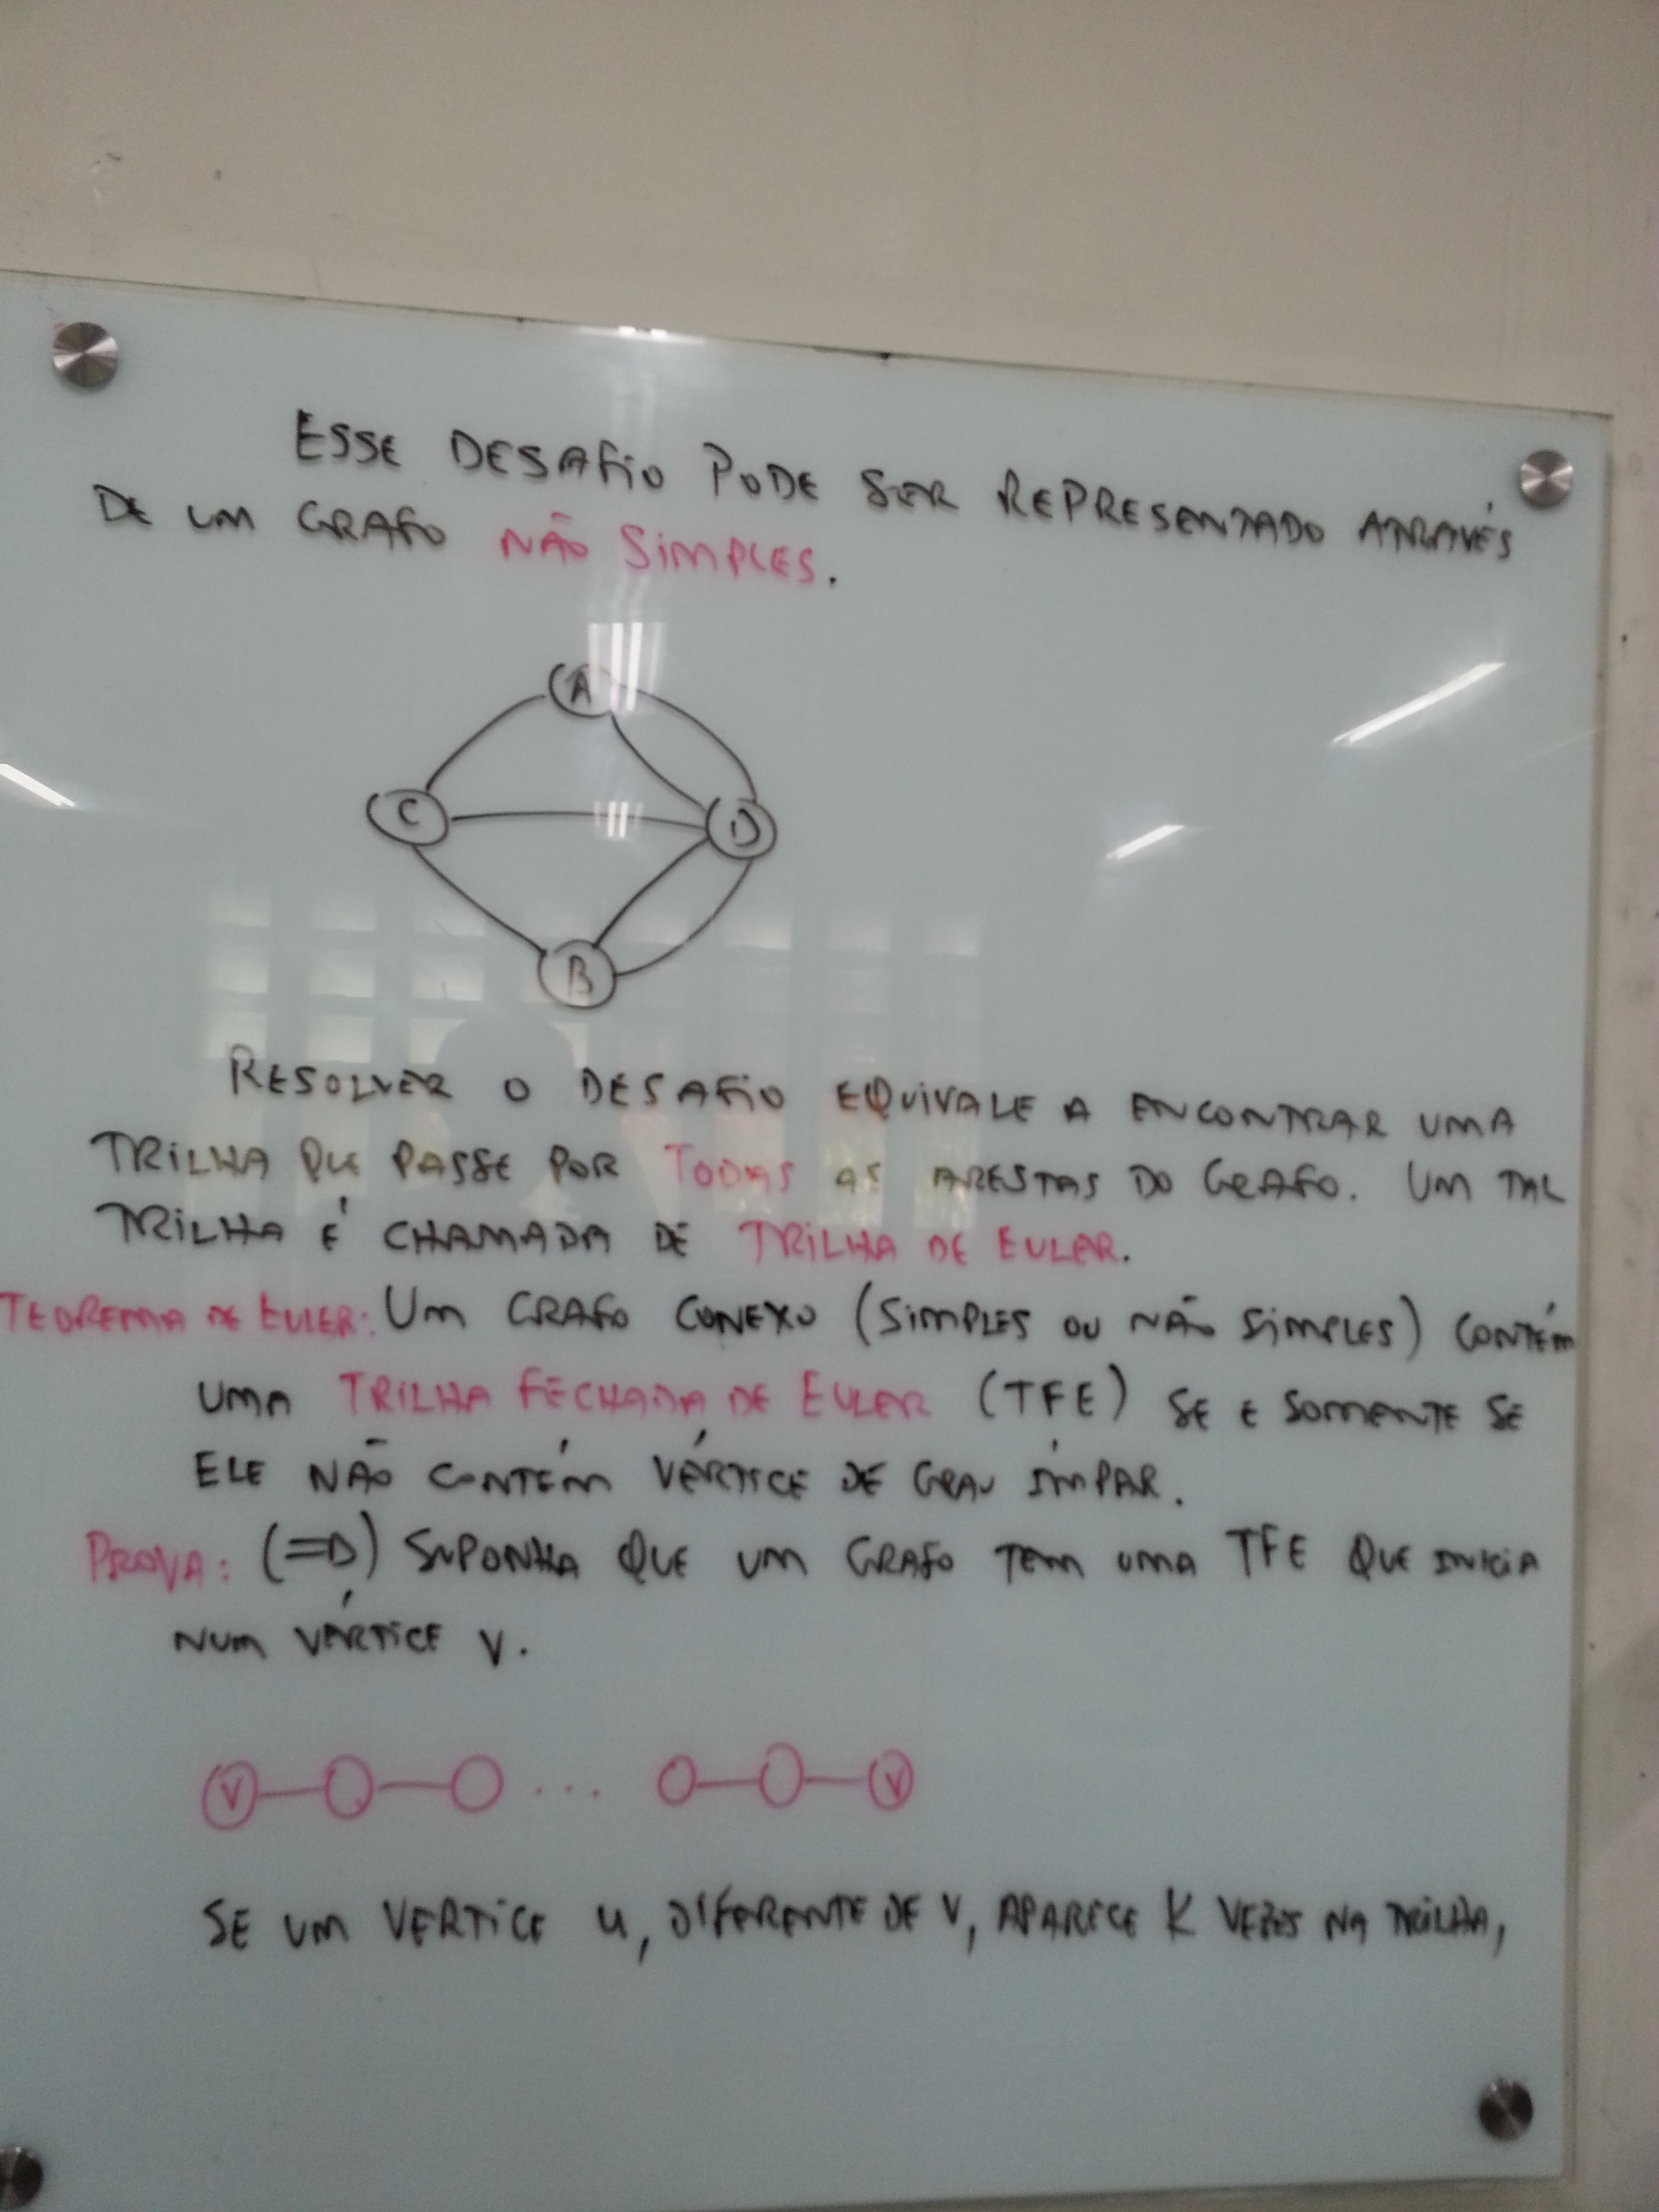 ESSE DESAFIO PODE SER REPRESENTADO ATRAVÉS
DE UM GRAFO NÃO SIMPLES.
A
C
D
B
RESOLVER O DESAFIO EQUIVALE A ENCONTRAR UMA
TRILHA QUE PASSE POR TODAS AS ARESTAS DO GRAFO. UM TAL
TRILHA É CHAMADA DE TRILHA DE EULER.
TEOREMA DE EULER: UM GRAFO CONEXO (SIMPLES OU NÃO SIMPLES) CONTÉM
UMA TRILHA FECHADA DE EULER (TFE) SE E SOMENTE SE
ELE NÃO CONTÉM VÉRTICE DE GRAU ÍMPAR.
PROVA: (⇒) SUPONHA QUE UM GRAFO TEM UMA TFE QUE INICIA
NUM VÉRTICE V.
V ... V
SE UM VERTICE u, DIFERENTE DE V, APARECE K VEZES NA TRILHA,